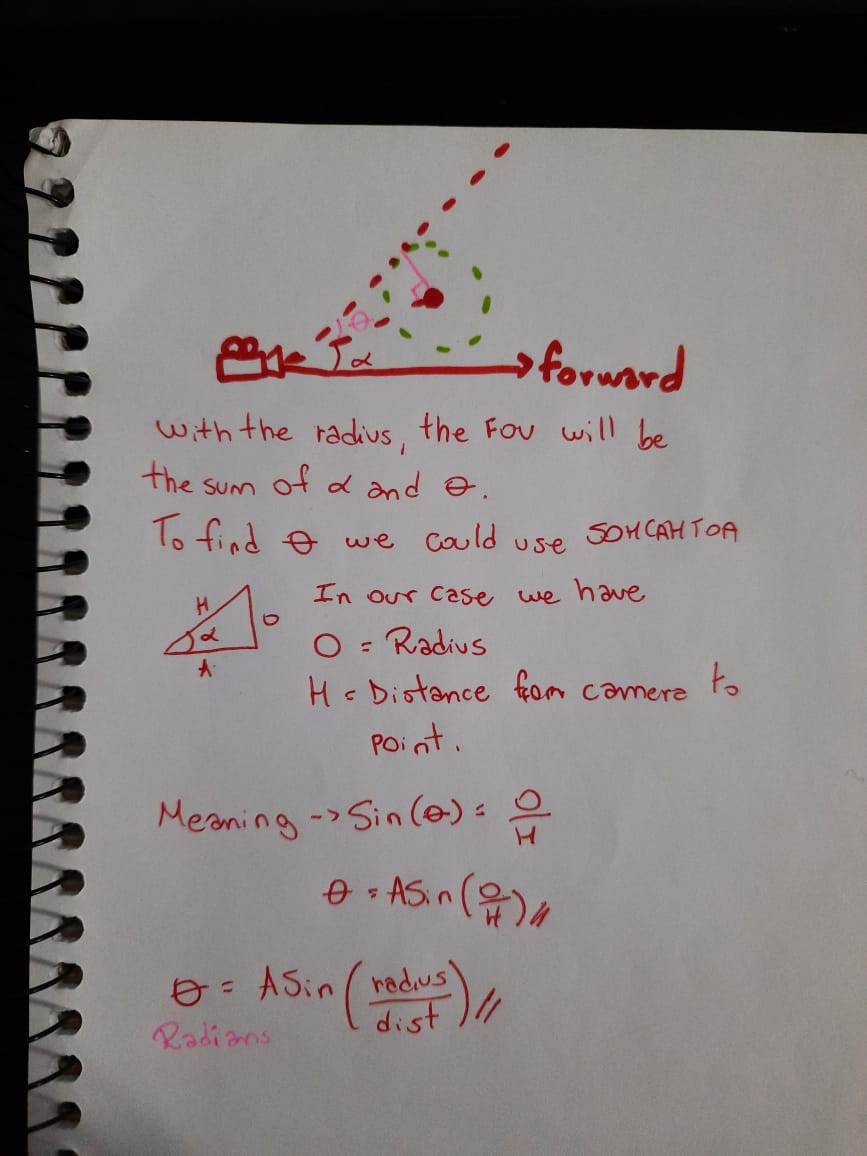 θ
α
forward
with the radius, the FOV will be
the sum of α and θ.
To find θ we could use SOHCAHTOA
In our case we have
H
α
O
A
O = Radius
H = Distance from camera to
point.
Meaning -> Sin(θ) = O/H
θ = ASin(O/H)//
θ = ASin(radius/dist)//
Radians